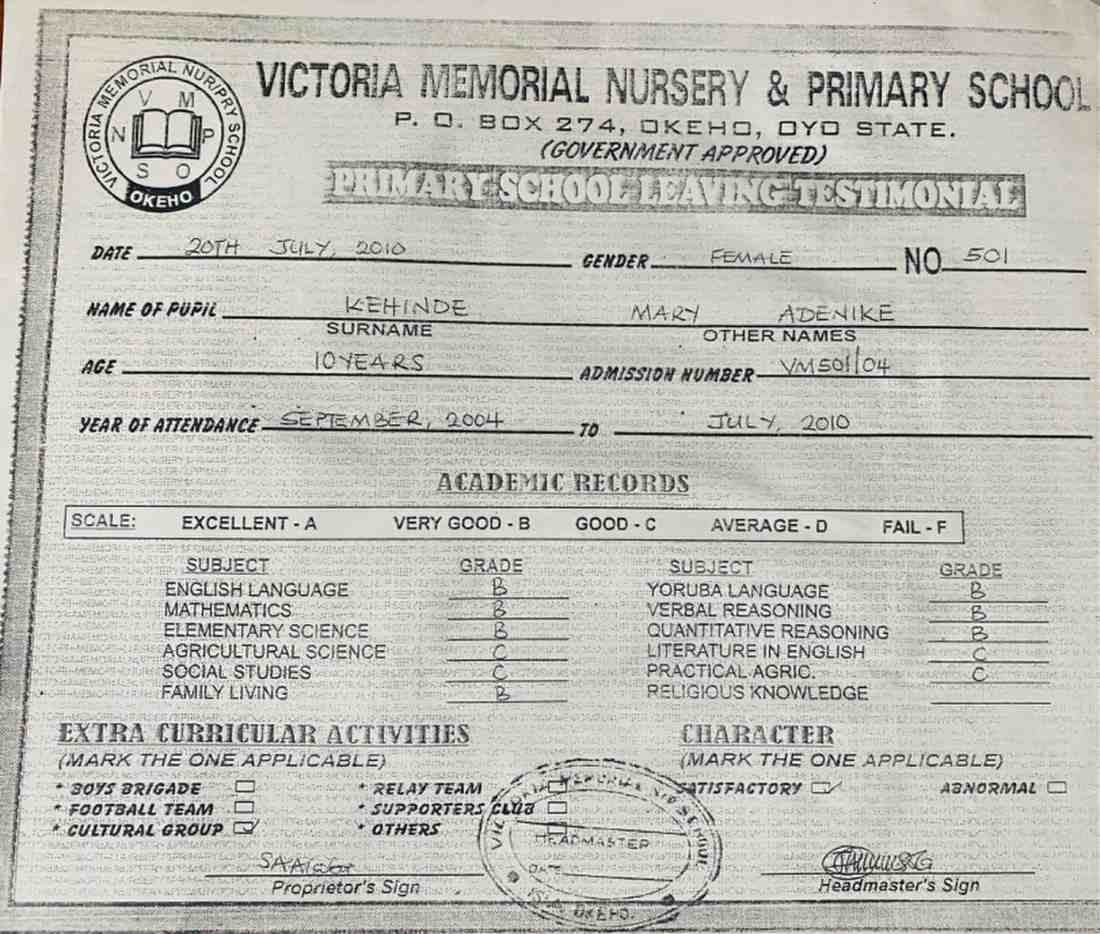 VICTORIA MEMORIAL NUR/PRY SCHOOL
V M
N P
S O
OKEHO
VICTORIA MEMORIAL NURSERY & PRIMARY SCHOOL
P. O. BOX 274, OKEHO, OYO STATE.
(GOVERNMENT APPROVED)
PRIMARY SCHOOL LEAVING TESTIMONIAL
DATE 20TH JULY, 2010 GENDER FEMALE NO 501
NAME OF PUPIL KEHINDE MARY ADENIKE
SURNAME OTHER NAMES
AGE 10 YEARS ADMISSION NUMBER VM501/04
YEAR OF ATTENDANCE SEPTEMBER, 2004 TO JULY, 2010
ACADEMIC RECORDS
SCALE: EXCELLENT - A VERY GOOD - B GOOD - C AVERAGE - D FAIL - F
SUBJECT GRADE SUBJECT GRADE
ENGLISH LANGUAGE B YORUBA LANGUAGE B
MATHEMATICS B VERBAL REASONING B
ELEMENTARY SCIENCE B QUANTITATIVE REASONING B
AGRICULTURAL SCIENCE C LITERATURE IN ENGLISH C
SOCIAL STUDIES C PRACTICAL AGRIC. C
FAMILY LIVING B RELIGIOUS KNOWLEDGE
EXTRA CURRICULAR ACTIVITIES CHARACTER
(MARK THE ONE APPLICABLE) (MARK THE ONE APPLICABLE)
* BOYS BRIGADE * RELAY TEAM SATISFACTORY ABNORMAL
* FOOTBALL TEAM * SUPPORTERS CLUB
* CULTURAL GROUP * OTHERS
HEADMASTER
DATE
OKEHO.
Proprietor's Sign Headmaster's Sign